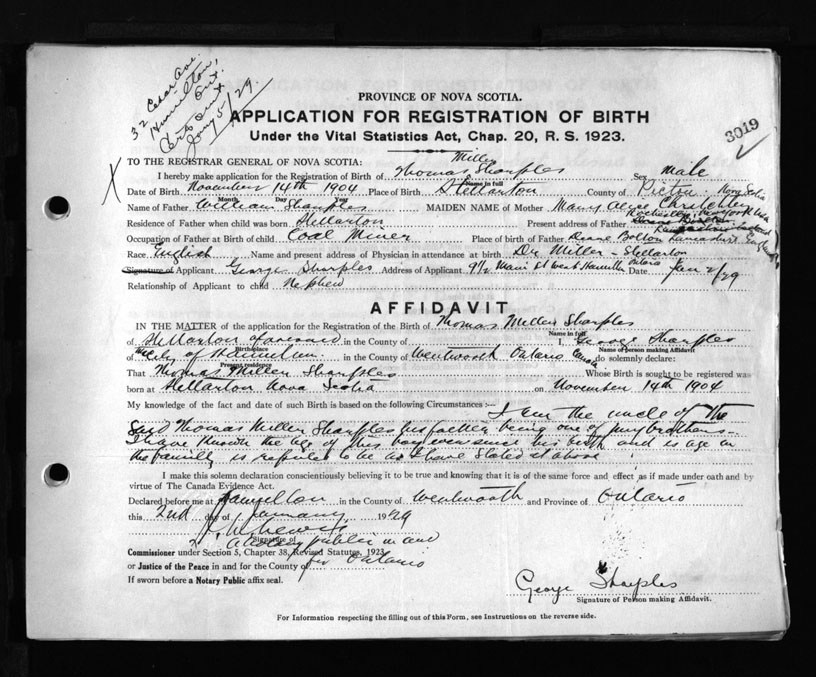 32 Cedar Ave
Hamilton,
Ont.
Jany 5/29
PROVINCE OF NOVA SCOTIA.
APPLICATION FOR REGISTRATION OF BIRTH
Under the Vital Statistics Act, Chap. 20, R. S. 1923.
3019
TO THE REGISTRAR GENERAL OF NOVA SCOTIA:
I hereby make application for the Registration of Birth of Thomas Miller Sharples Sex Male
Name in full
Date of Birth November 14th 1904 Place of Birth Stellarton County of Pictou Nova Scotia
Month Day Year
Name of Father William Sharples MAIDEN NAME of Mother Mary Alice Critchley
Residence of Father when child was born Stellarton Present address of Father Rockville, New York USA
Occupation of Father at Birth of child Coal Miner Place of birth of Father Deane Bolton Lancashire England
Race English Name and present address of Physician in attendance at birth Dr Miller - Stellarton
Signature of Applicant George Sharples Address of Applicant 91½ Main St West Hamilton Ontario Date Jan 2/29
Relationship of Applicant to child Nephew
AFFIDAVIT
IN THE MATTER of the application for the Registration of the Birth of Thomas Miller Sharples
Name in full
of Stellarton in the County of I, George Sharples
Birthplace Name of person making Affidavit
of the City of Hamilton in the County of Wentworth Ontario Canada do solemnly declare:
Present residence
That Thomas Miller Sharples Whose Birth is sought to be registered was
born at Stellarton Nova Scotia on November 14th 1904
My knowledge of the fact and date of such Birth is based on the following Circumstances :— I am the uncle of the
Said Thomas Miller Sharples his father being one of my brothers—
I have known the age of this boy ever since his birth and is age in
the family is reputed to be as I have stated it above
I make this solemn declaration conscientiously believing it to be true and knowing that it is of the same force and effect as if made under oath and by
virtue of The Canada Evidence Act.
Declared before me at Hamilton in the County of Wentworth and Province of Ontario
this 2nd day of January 1929
Signature of
A Notary public in and
Commissioner under Section 5, Chapter 38, Revised Statutes, 1923
or Justice of the Peace in and for the County of for Ontario
If sworn before a Notary Public affix seal.
George Sharples
Signature of Person making Affidavit.
For Information respecting the filling out of this Form, see Instructions on the reverse side.